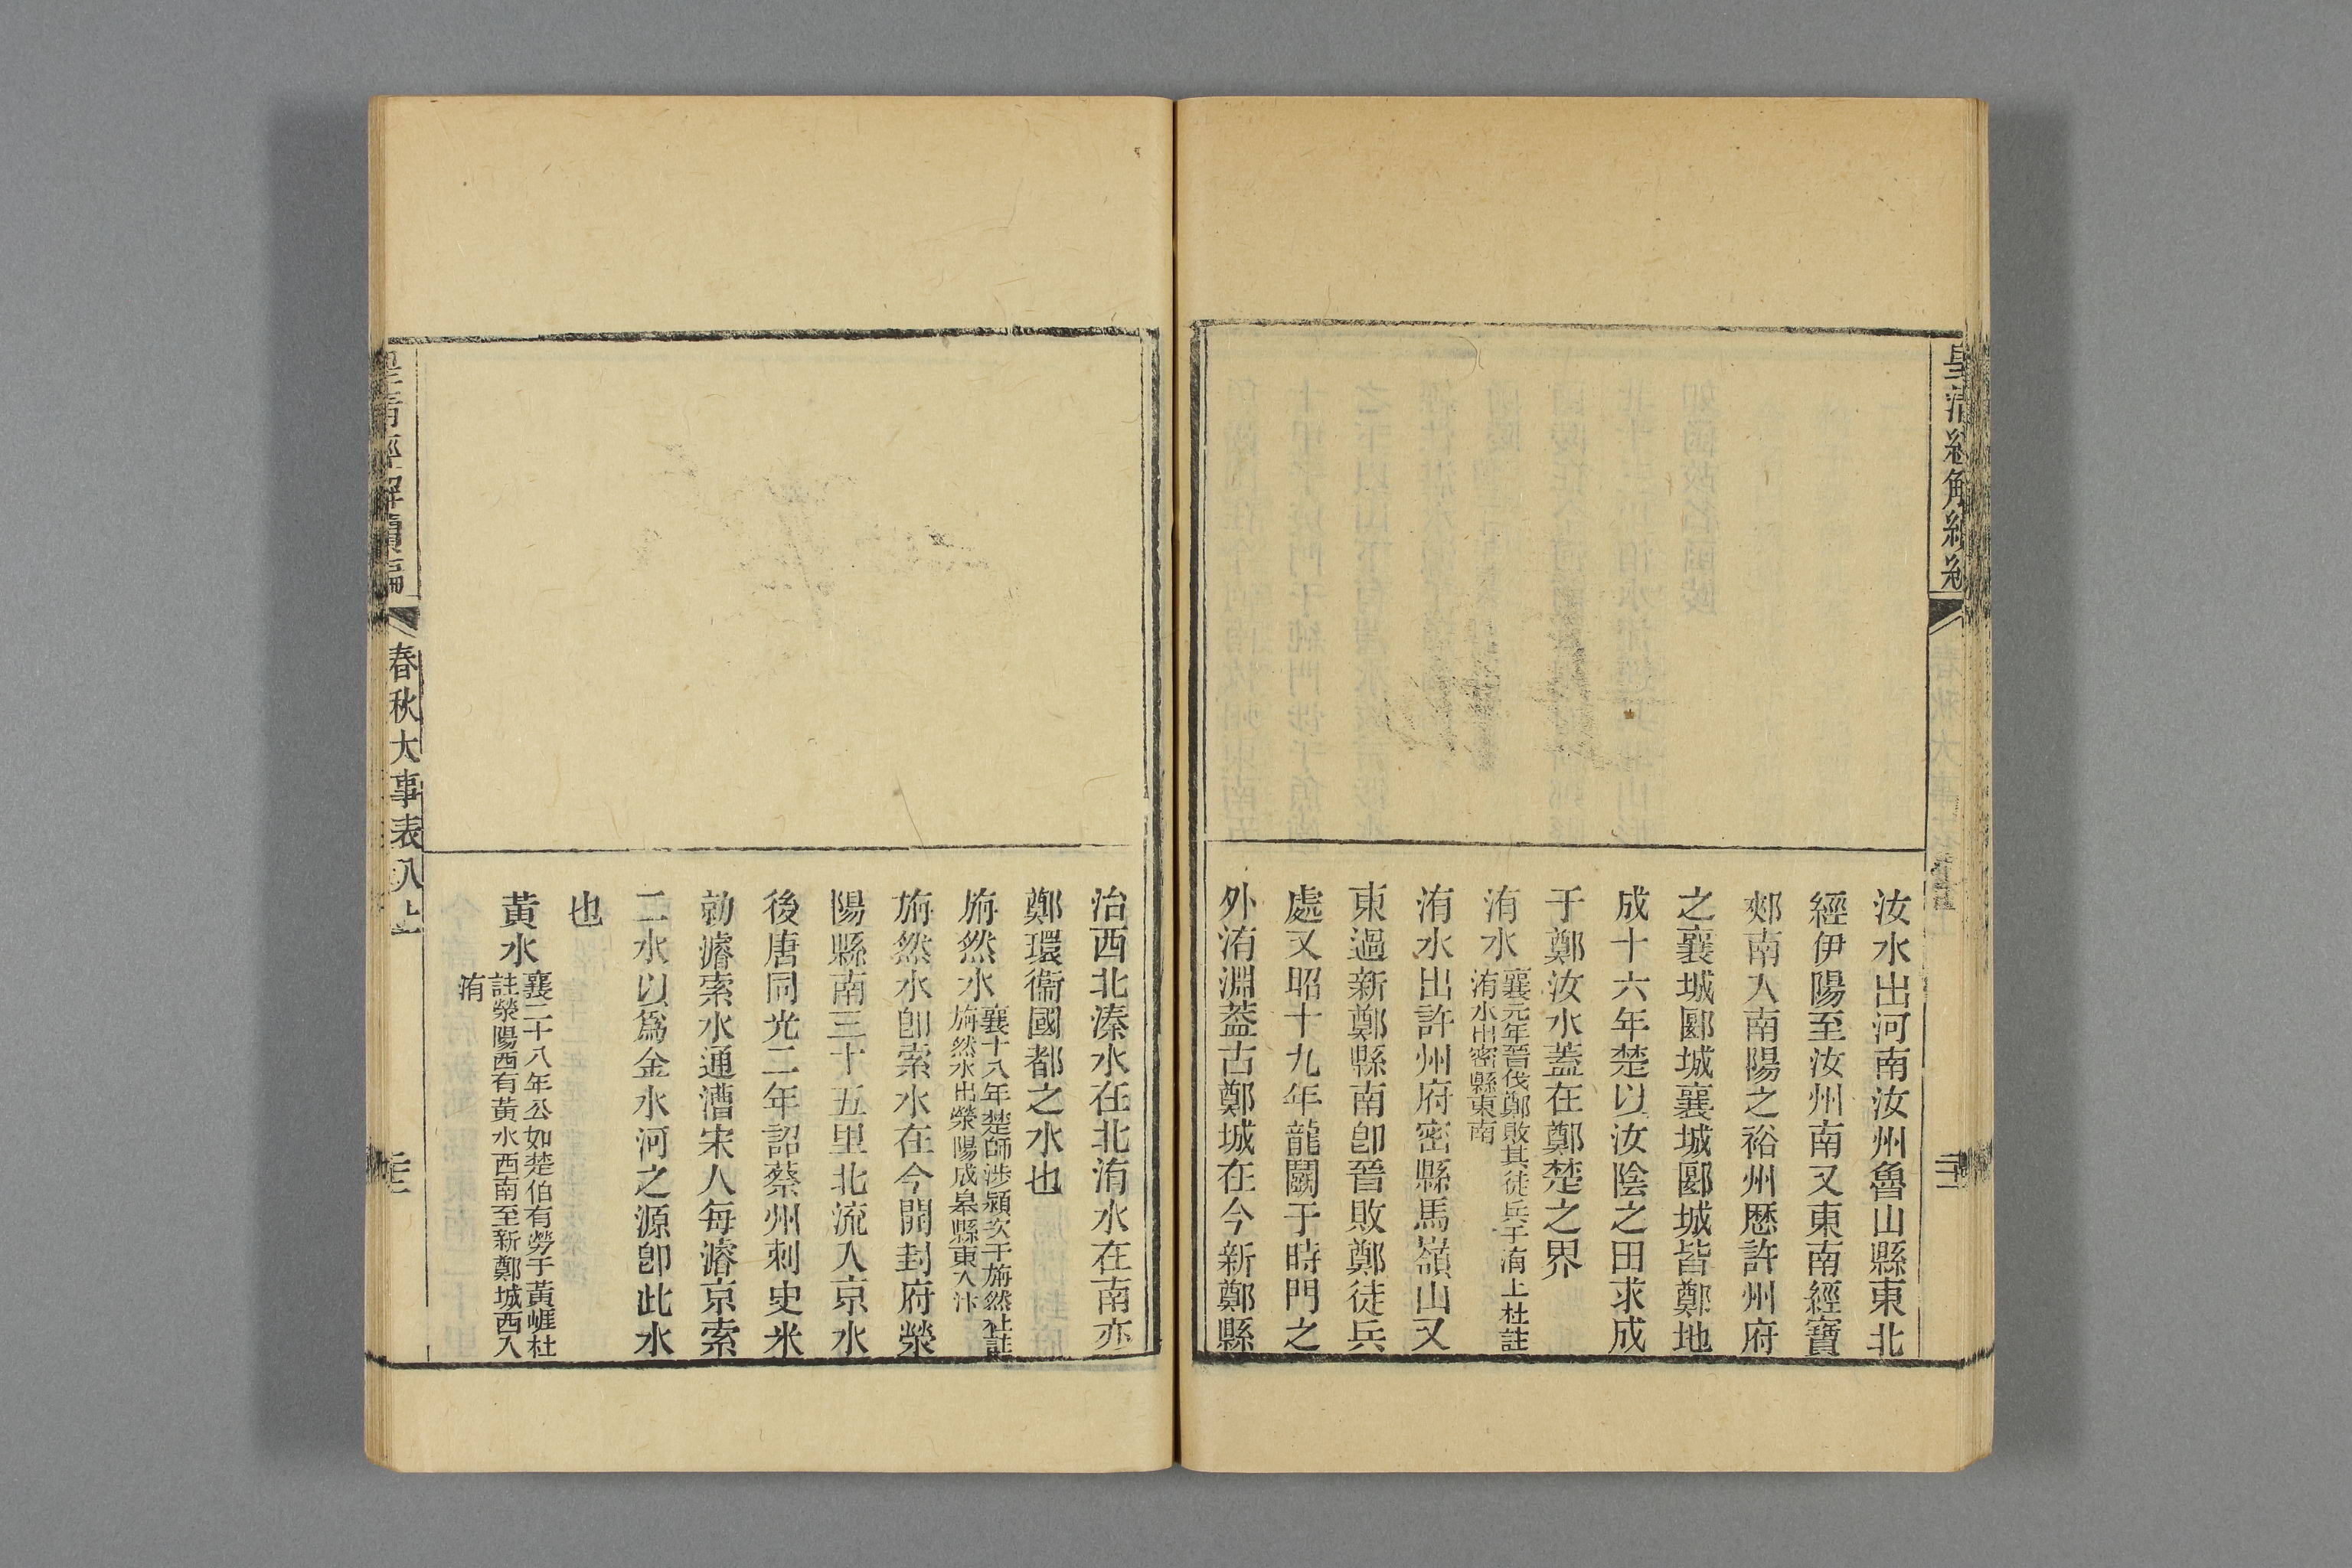 汝水出河南汝州魯山縣東北
經伊陽至汝州南又東南經寶
郟南入南陽之裕州歷許州府
之襄城郾城襄城郾城皆鄭地
成十六年楚以汝陰之田求成
于鄭汝水蓋在鄭楚之界
洧水襄元年晉伐鄭敗其徒兵于洧上杜註
洧水出密縣東南
洧水出許州府密縣馬嶺山又
東過新鄭縣南卽晉敗鄭徒兵
處又昭十九年龍鬬于時門之
外洧淵蓋古鄭城在今新鄭縣
治西北溱水在北洧水在南亦
鄭環衞國都之水也
旃然水襄十八年楚師涉潁次于旃然杜註
旃然水出滎陽成皋縣東入汴
旃然水卽索水在今開封府滎
陽縣南三十五里北流入京水
後唐同光二年詔蔡州刺史米
勍濬索水通漕宋人每濬京索
二水以爲金水河之源卽此水
也
黃水襄二十八年公如楚伯有勞于黃崖杜
註滎陽西有黃水西南至新鄭城西入
洧
皇清經解續編
春秋大事表八上